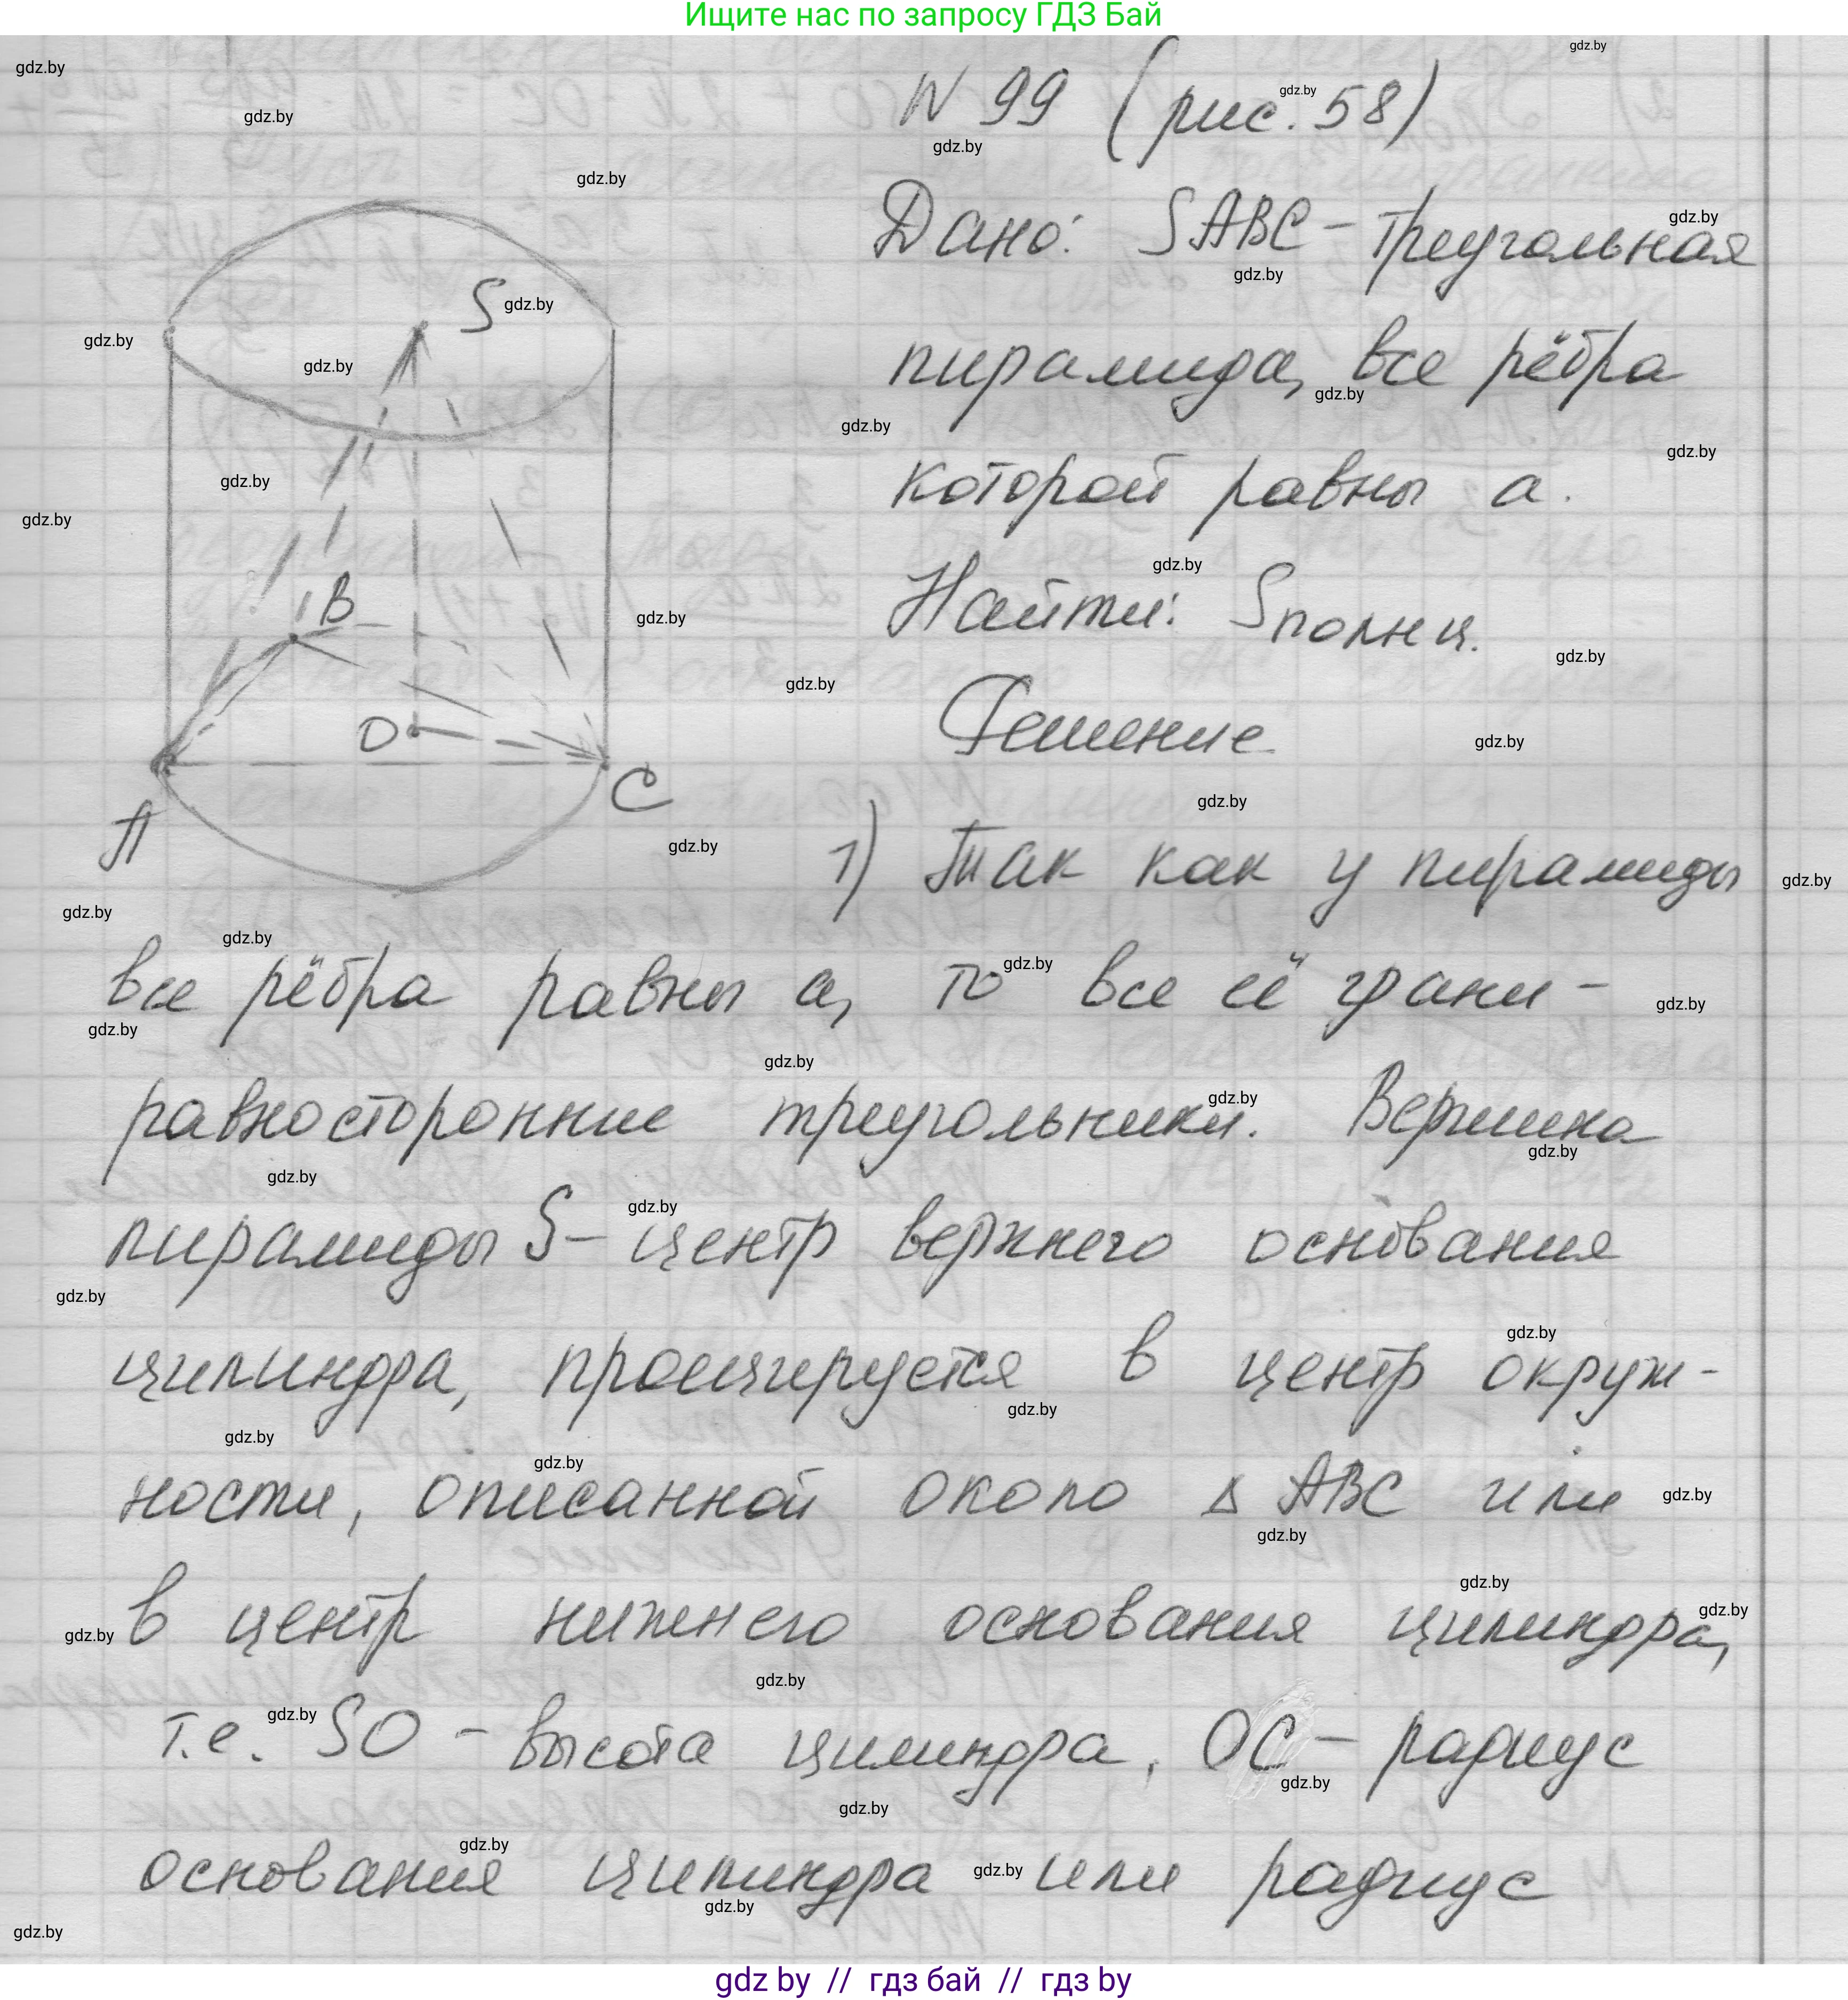 Ищите нас по запросу ГДЗ Бай
N 99 (рис. 58)
Дано: SABC - треугольная
пирамида, все рёбра
которой равны a.
Найти: Sполн ц.
Решение
S
B
O
A
C
1) Так как у пирамиды
все рёбра равны a, то все её грани -
равносторонние треугольники. Вершина
пирамиды S - центр верхнего основания
цилиндра, проецируется в центр окруж-
ности, описанной около Δ ABC или
в центр нижнего основания цилиндра,
т.е. SO - высота цилиндра, OC - радиус
основания цилиндра или радиус
gdz by // гдз бай // гдз by
gdz.by